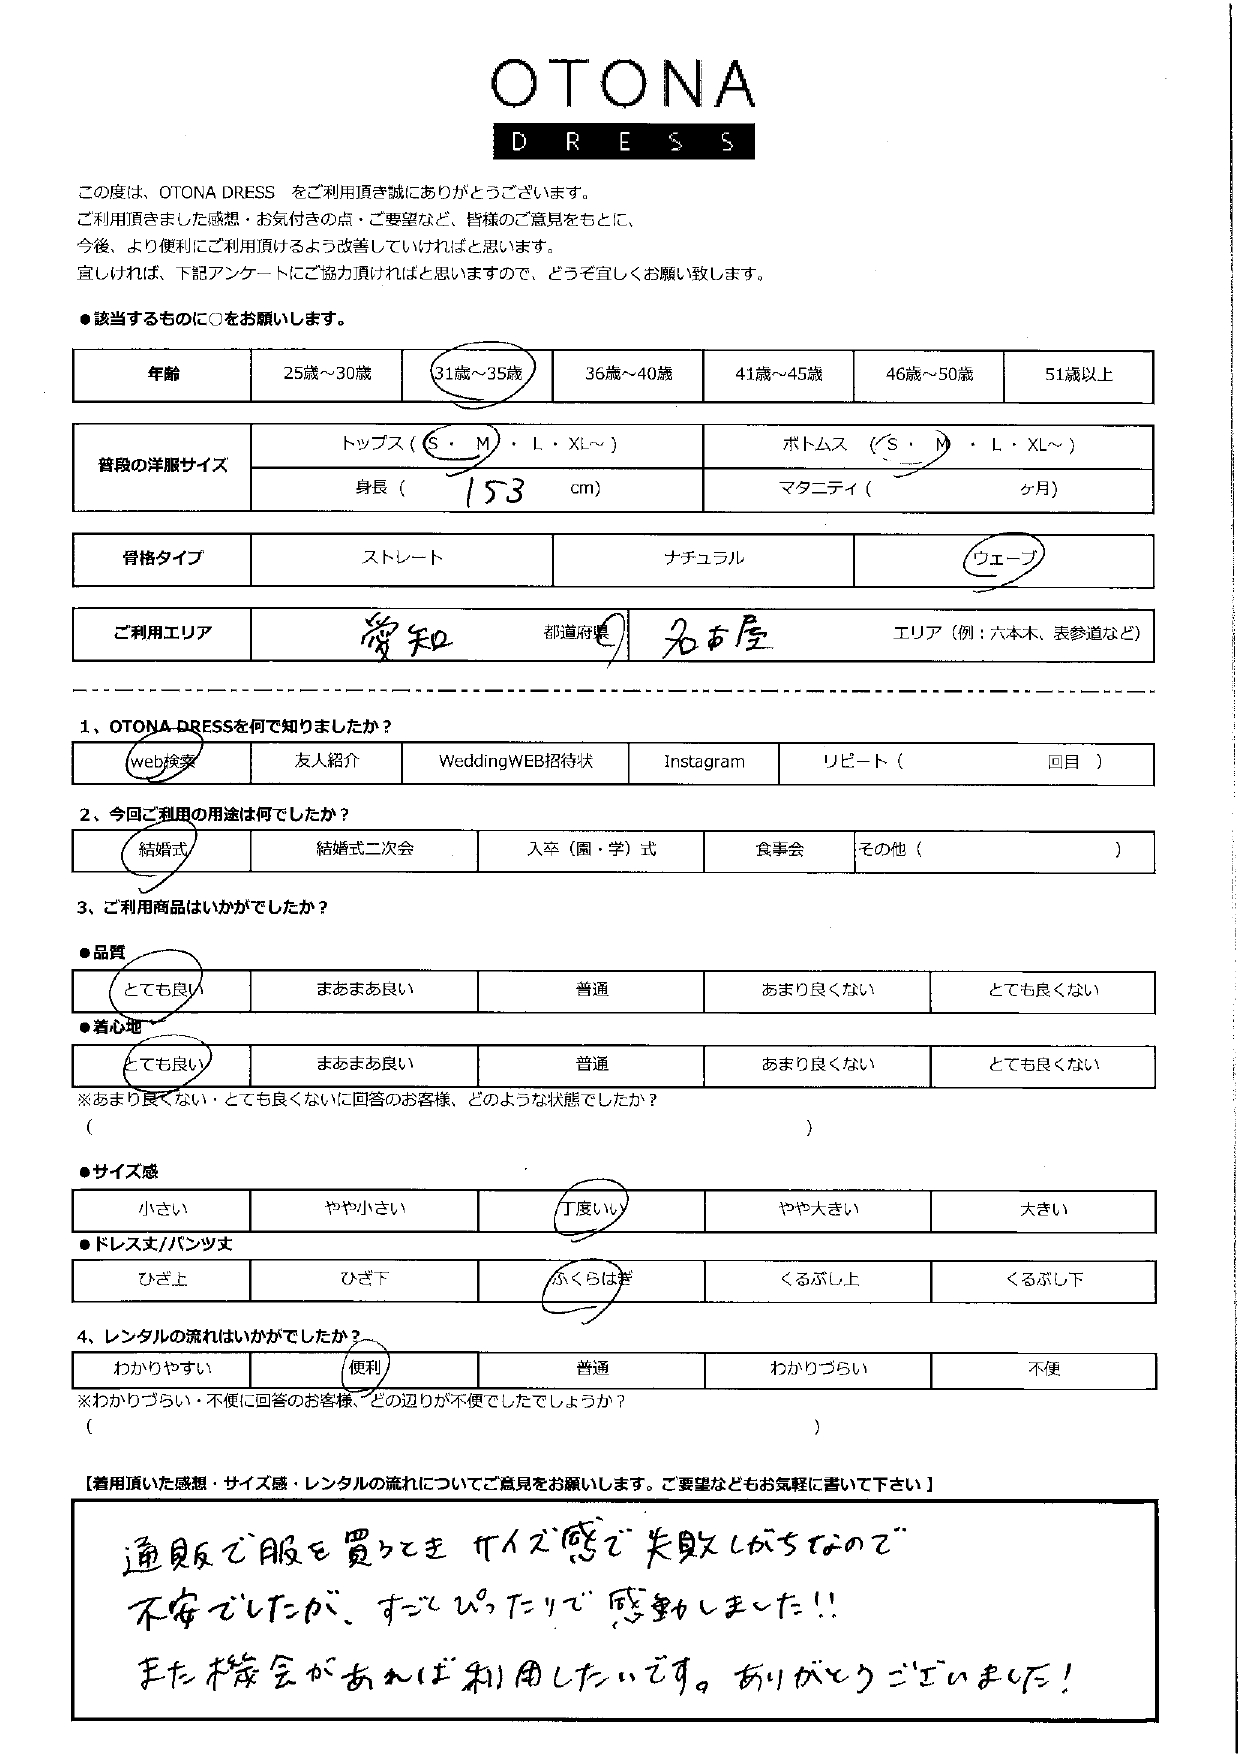 OTONA
DRESS
この度は、OTONA DRESS　をご利用頂き誠にありがとうございます。
ご利用頂きました感想・お気付きの点・ご要望など、皆様のご意見をもとに、
今後、より便利にご利用頂けるよう改善していければと思います。
宜しければ、下記アンケートにご協力頂ければと思いますので、どうぞ宜しくお願い致します。
●該当するものに○をお願いします。
年齢 25歳～30歳 31歳～35歳 36歳～40歳 41歳～45歳 46歳～50歳 51歳以上
普段の洋服サイズ トップス ( S ・ M ・ L ・ XL～ ) ボトムス ( S ・ M ・ L ・ XL～ )
身長 ( 153 cm) マタニティ ( ヶ月)
骨格タイプ ストレート ナチュラル ウェーブ
ご利用エリア 愛知 都道府県 名古屋 エリア（例：六本木、表参道など）
1、OTONA DRESSを何で知りましたか？
web検索 友人紹介 WeddingWEB招待状 Instagram リピート（ 回目 ）
2、今回ご利用の用途は何でしたか？
結婚式 結婚式二次会 入卒（園・学）式 食事会 その他（ ）
3、ご利用商品はいかがでしたか？
●品質
とても良い まあまあ良い 普通 あまり良くない とても良くない
●着心地
とても良い まあまあ良い 普通 あまり良くない とても良くない
※あまり良くない・とても良くないに回答のお客様、どのような状態でしたか？
（ ）
●サイズ感
小さい やや小さい 丁度いい やや大きい 大きい
●ドレス丈/パンツ丈
ひざ上 ひざ下 ふくらはぎ くるぶし上 くるぶし下
4、レンタルの流れはいかがでしたか？
わかりやすい 便利 普通 わかりづらい 不便
※わかりづらい・不便に回答のお客様、どの辺りが不便でしたでしょうか？
（ ）
【着用頂いた感想・サイズ感・レンタルの流れについてご意見をお願いします。ご要望などもお気軽に書いて下さい】
通販で服を買うとき サイズ感で失敗しがちなので
不安でしたが、すごくぴったりで感動しました!!
また機会があれば利用したいです。ありがとうございました!